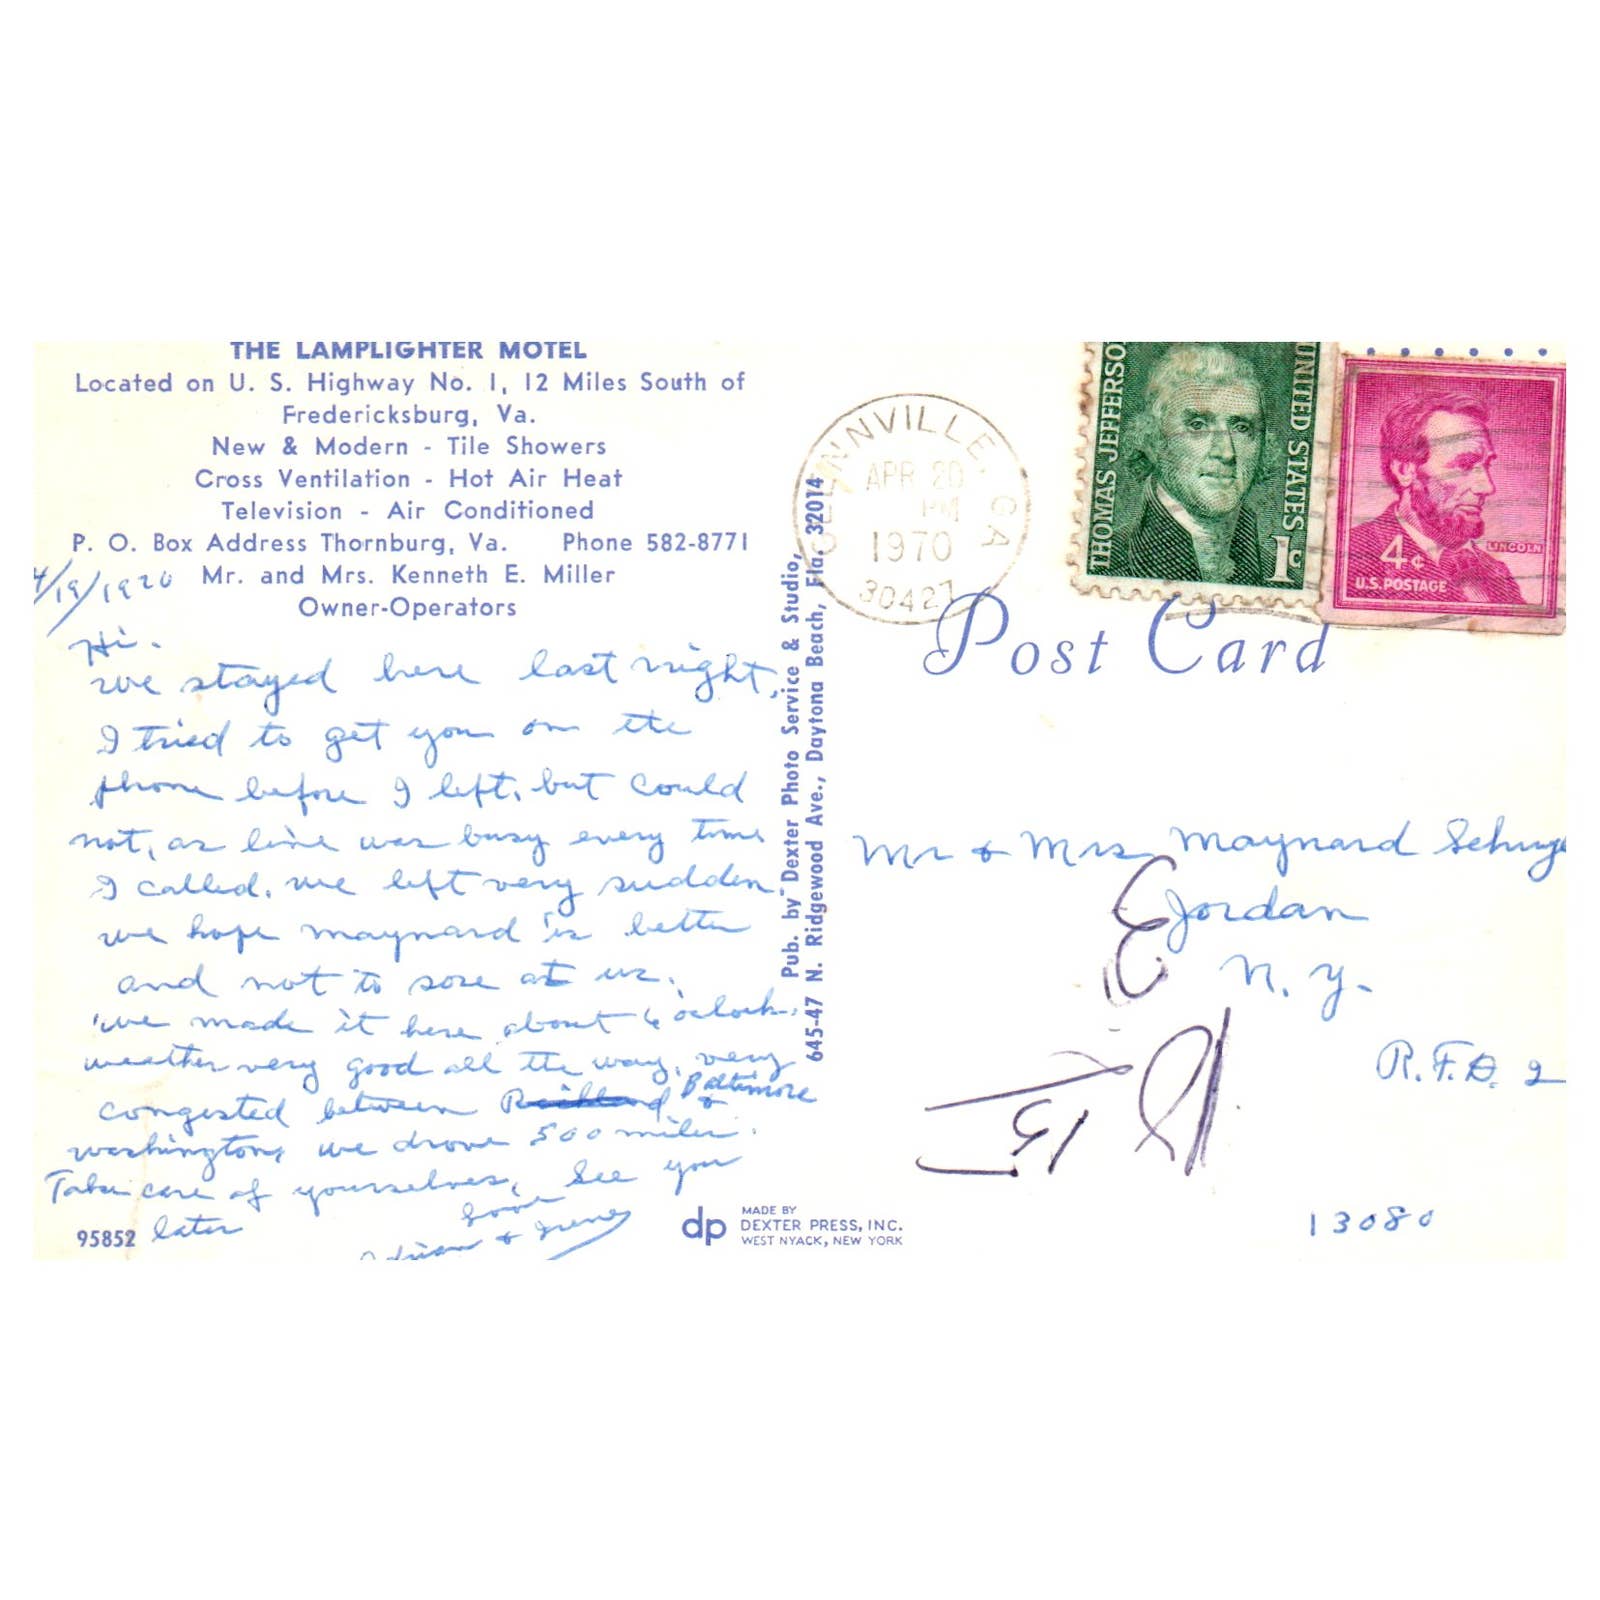 THE LAMPLIGHTER MOTEL
Located on U. S. Highway No. 1, 12 Miles South of
Fredericksburg, Va.
New & Modern - Tile Showers
Cross Ventilation - Hot Air Heat
Television - Air Conditioned
P. O. Box Address Thornburg, Va. Phone 582-8771
Mr. and Mrs. Kenneth E. Miller
Owner-Operators
4/19/1970
Hi.
we stayed here last night,
I tried to get you on the
phone before I left, but could
not, as line was busy every time
I called. we left very sudden.
we hope maynard is better
and not to sore at us.
we made it here about 6 o'clock.
weather very good all the way, very
congested between Baltimore &
washington, we drove 500 miles.
Take care of yourselves, See you
later
Love
& Irene
95852
Pub. by Dexter Photo Service & Studio,
645-47 N. Ridgewood Ave., Daytona Beach, Fla. 32014
dp
MADE BY
DEXTER PRESS, INC.
WEST NYACK, NEW YORK
GLENNVILLE, GA
APR 20
PM
1970
30427
THOMAS JEFFERSO
UNITED STATES
1c
4c
LINCOLN
U.S. POSTAGE
Post Card
Mr & Mrs Maynard
Jordan
N. Y.
R.F.D. 2
13080